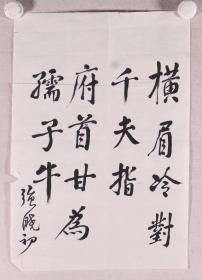 橫眉冷對
千夫指
府首甘為
孺子牛
強曉初